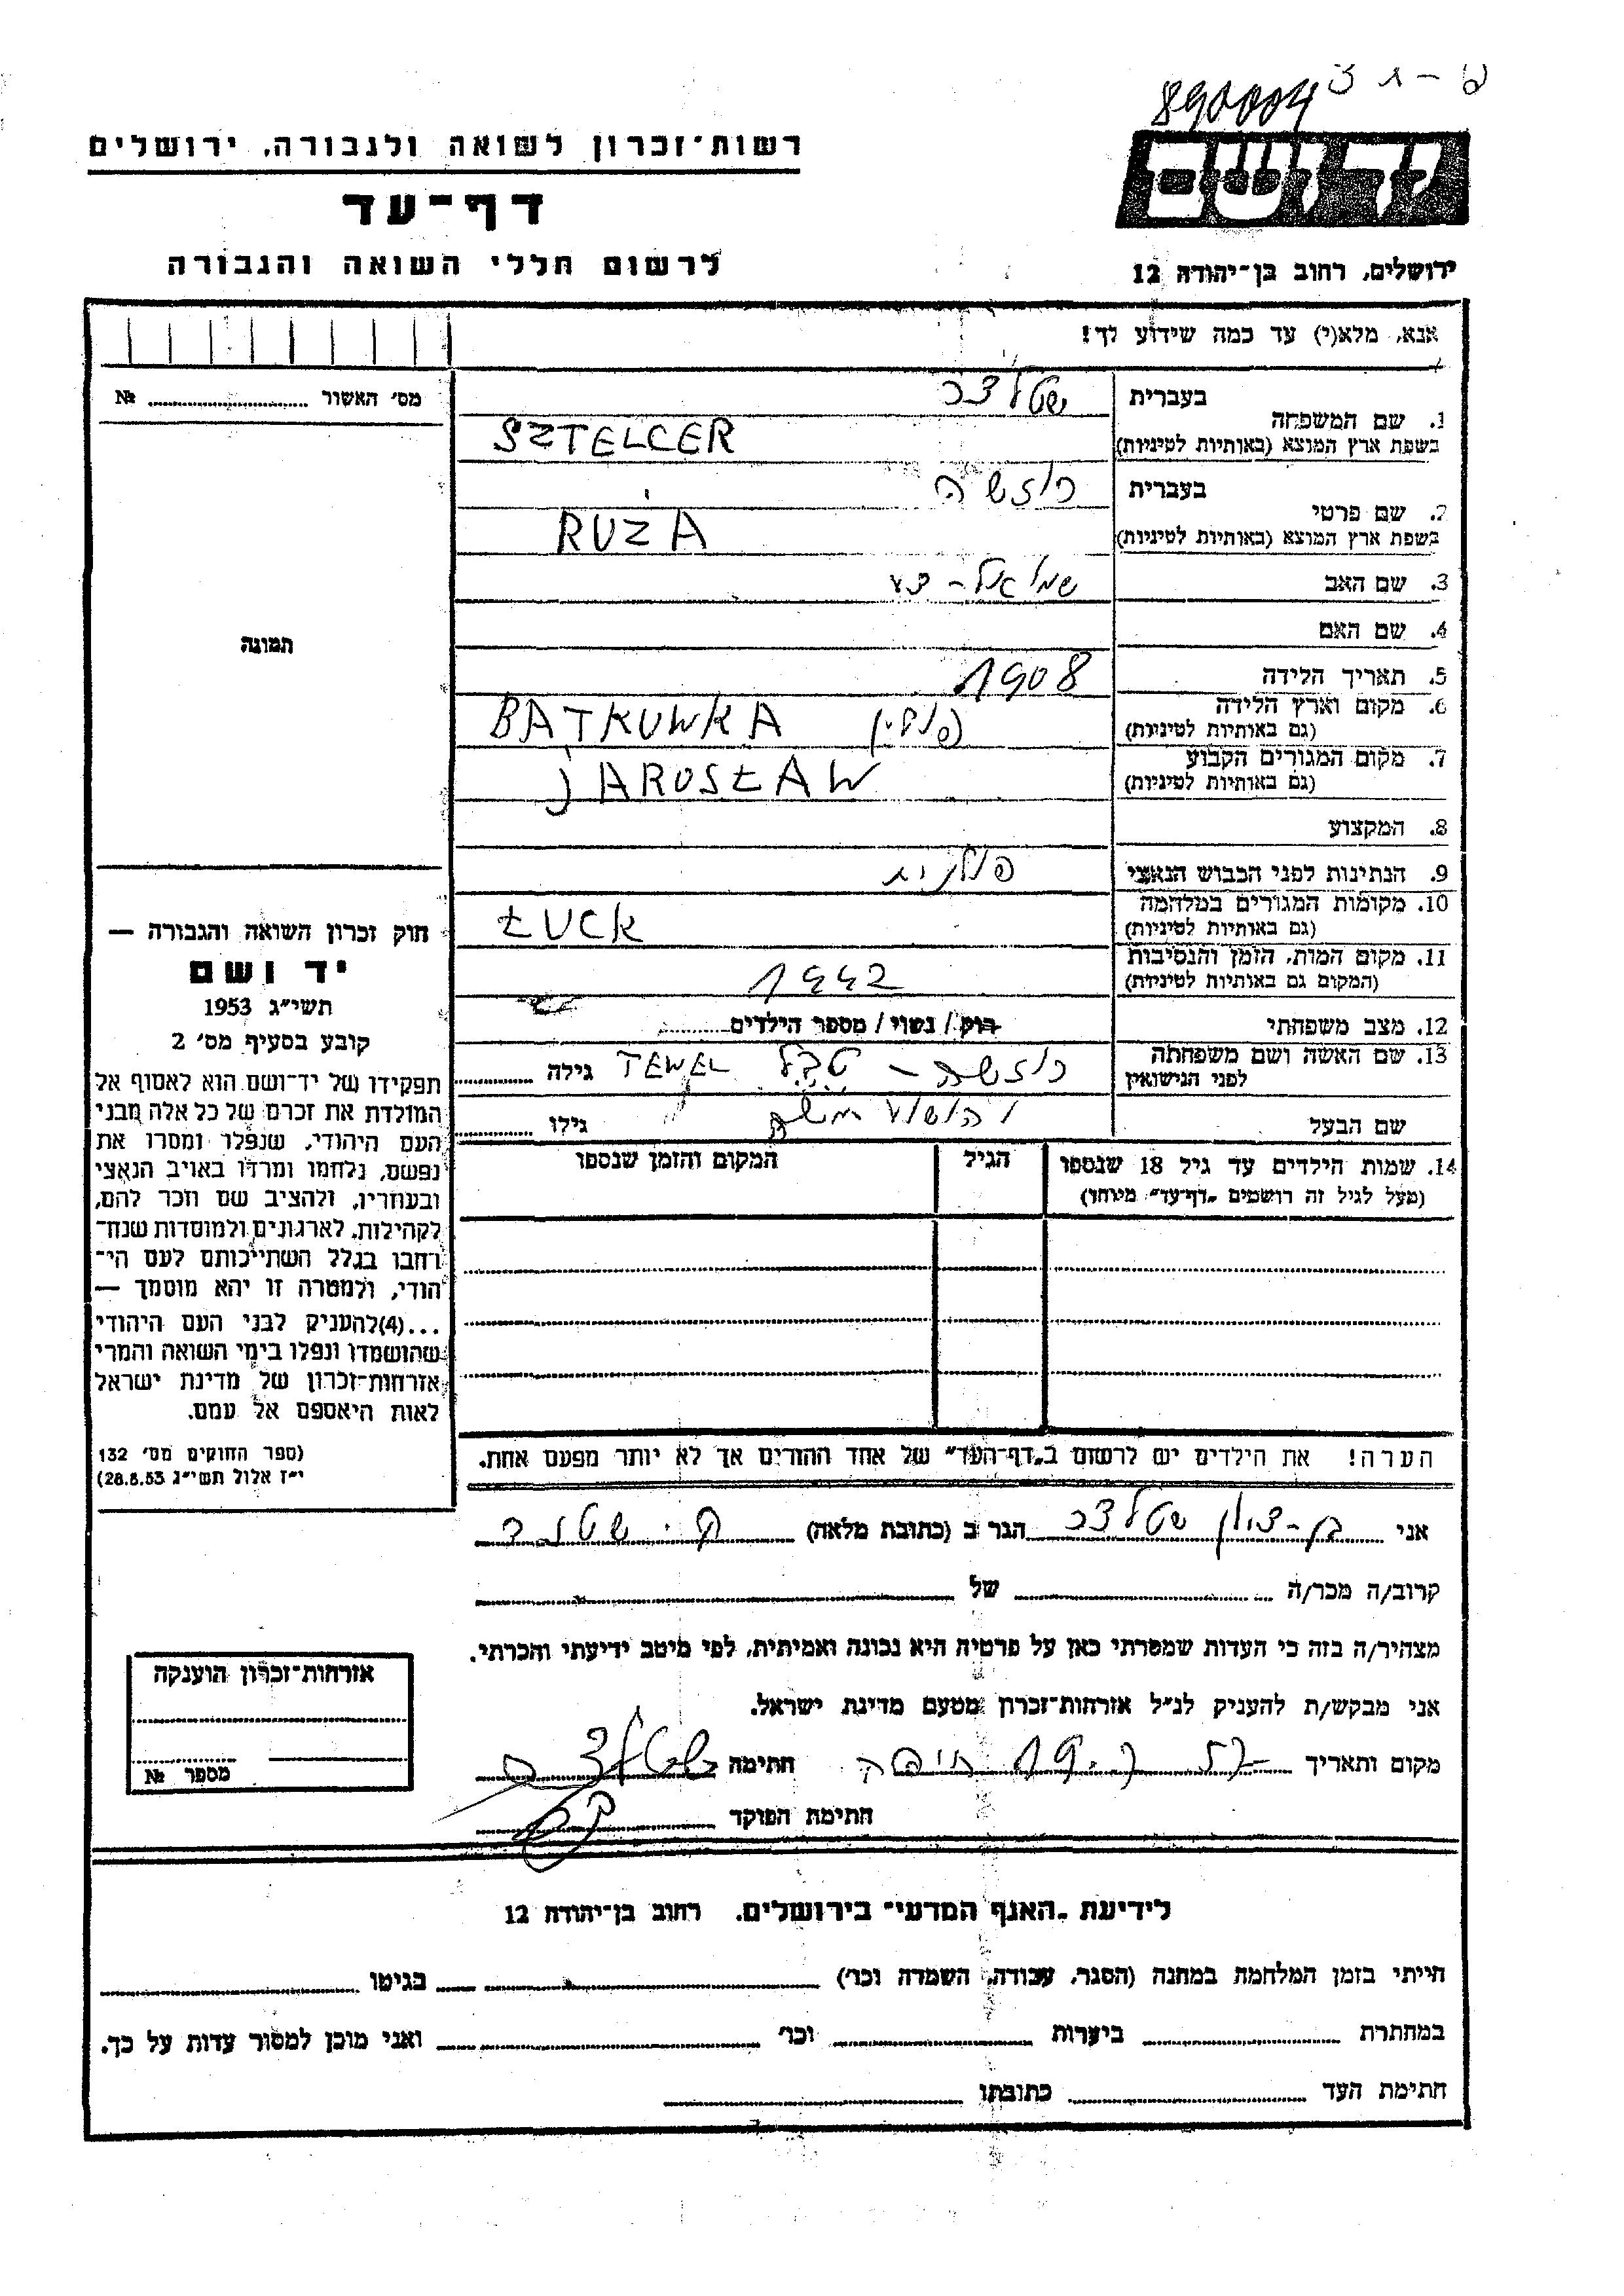 890004
רשות־זכרון לשואה ולגבורה, ירושלים
דף־עד
לרשום חללי השואה והגבורה
יד ושם
ירושלים, רחוב בן־יהודה 12
אנא, מלא(י) עד כמה שידוע לך!
מס׳ האשור № ..........
תמונה
1. שם המשפחה
בעברית שטלצר
בשפת ארץ המוצא (באותיות לטיניות) SZTELCER
2. שם פרטי
בעברית רוזשה
בשפת ארץ המוצא (באותיות לטיניות) RUŻA
3. שם האב שמואל-
4. שם האם
5. תאריך הלידה 1908
6. מקום וארץ הלידה
(גם באותיות לטיניות) BATKUWKA (פולין)
7. מקום המגורים הקבוע
(גם באותיות לטיניות) JAROSŁAW
8. המקצוע
9. הנתינות לפני הכבוש הנאצי פולנית
10. מקומות המגורים במלחמה
(גם באותיות לטיניות) ŁUCK
11. מקום המות, הזמן והנסיבות
(המקום גם באותיות לטיניות) 1942
12. מצב משפחתי רוק / נשוי / מספר הילדים..........
13. שם האשה ושם משפחתה
לפני הנישואין רוזשה - טבל TEWEL גילה ..........
שם הבעל יהושוע משה גילו ..........
14. שמות הילדים עד גיל 18 שנספו
(מעל לגיל זה רושמים „דף־עד״ מיוחד)
הגיל
המקום והזמן שנספו
חוק זכרון השואה והגבורה —
יד ושם
תשי״ג 1953
קובע בסעיף מס׳ 2
תפקידו של יד־ושם הוא לאסוף אל
המולדת את זכרם של כל אלה מבני
העם היהודי, שנפלו ומסרו את
נפשם, נלחמו ומרדו באויב הנאצי
ובעוזריו, ולהציב שם וזכר להם,
לקהילות, לארגונים ולמוסדות שנח־
רחבו בגלל השתייכותם לעם הי־
הודי, ולמטרה זו יהא מוסמך —
...(4)להעניק לבני העם היהודי
שהושמדו ונפלו בימי השואה והמרי
אזרחות־זכרון של מדינת ישראל
לאות היאספם אל עמם.
(ספר החוקים מס׳ 132
י״ז אלול תשי״ג 28.8.53)
הערה! את הילדים יש לרשום ב„דף־העד״ של אחד ההורים אך לא יותר מפעם אחת.
אני בן-ציון שטלצר הגר ב (כתובת מלאה) ק.
קרוב/ה מכר/ה .......... של ..........
מצהיר/ה בזה כי העדות שמסרתי כאן על פרטיה היא נכונה ואמיתית, לפי מיטב ידיעתי והכרתי.
אני מבקש/ת להעניק לנ״ל אזרחות־זכרון מטעם מדינת ישראל.
מקום ותאריך חיפה חתימה שטלצר
חתימת הפוקד
אזרחות־זכרון הוענקה
מספר №
לידיעת „האגף המדעי״ בירושלים, רחוב בן־יהודה 12
הייתי בזמן המלחמה במחנה (הסגר, עבודה, השמדה וכו׳) .......... בגיטו ..........
במחתרת .......... ביערות .......... וכו׳ .......... ואני מוכן למסור עדות על כך.
חתימת העד .......... כתובתו ..........